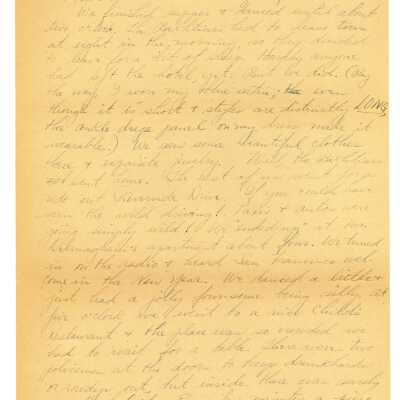 We finished supper & danced until about
two o'clock. La had to leave town
at eight in the morning, so they decided
to leave for a bit of sleep. Hardly anyone
had left the hotel, yet. But we did. (By
the way, I wore my blue satin; even
though it is short & styles are distinctly LONG,
the ankle drape panel on my dress made it
wearable.) We saw some beautiful clothes
there & exquisite jewelry. Well, the
went home. The rest of us went for a
ride out Riverside Drive. If you could have
seen the wild driving!. Taxis & autos were
going simply wild! We "ended up" at Mr.
apartment about four. We tuned
in on the radio & heard San Francisco wel-
come in the New Year. We danced a little &
just had a jolly foursome being silly. At
five o'clock we went to a nice Child's
restaurant & the place was so crowded we
had to wait for a table. There were two
policemen at the door to keep drunkards
or rowdies out, but inside there was surely